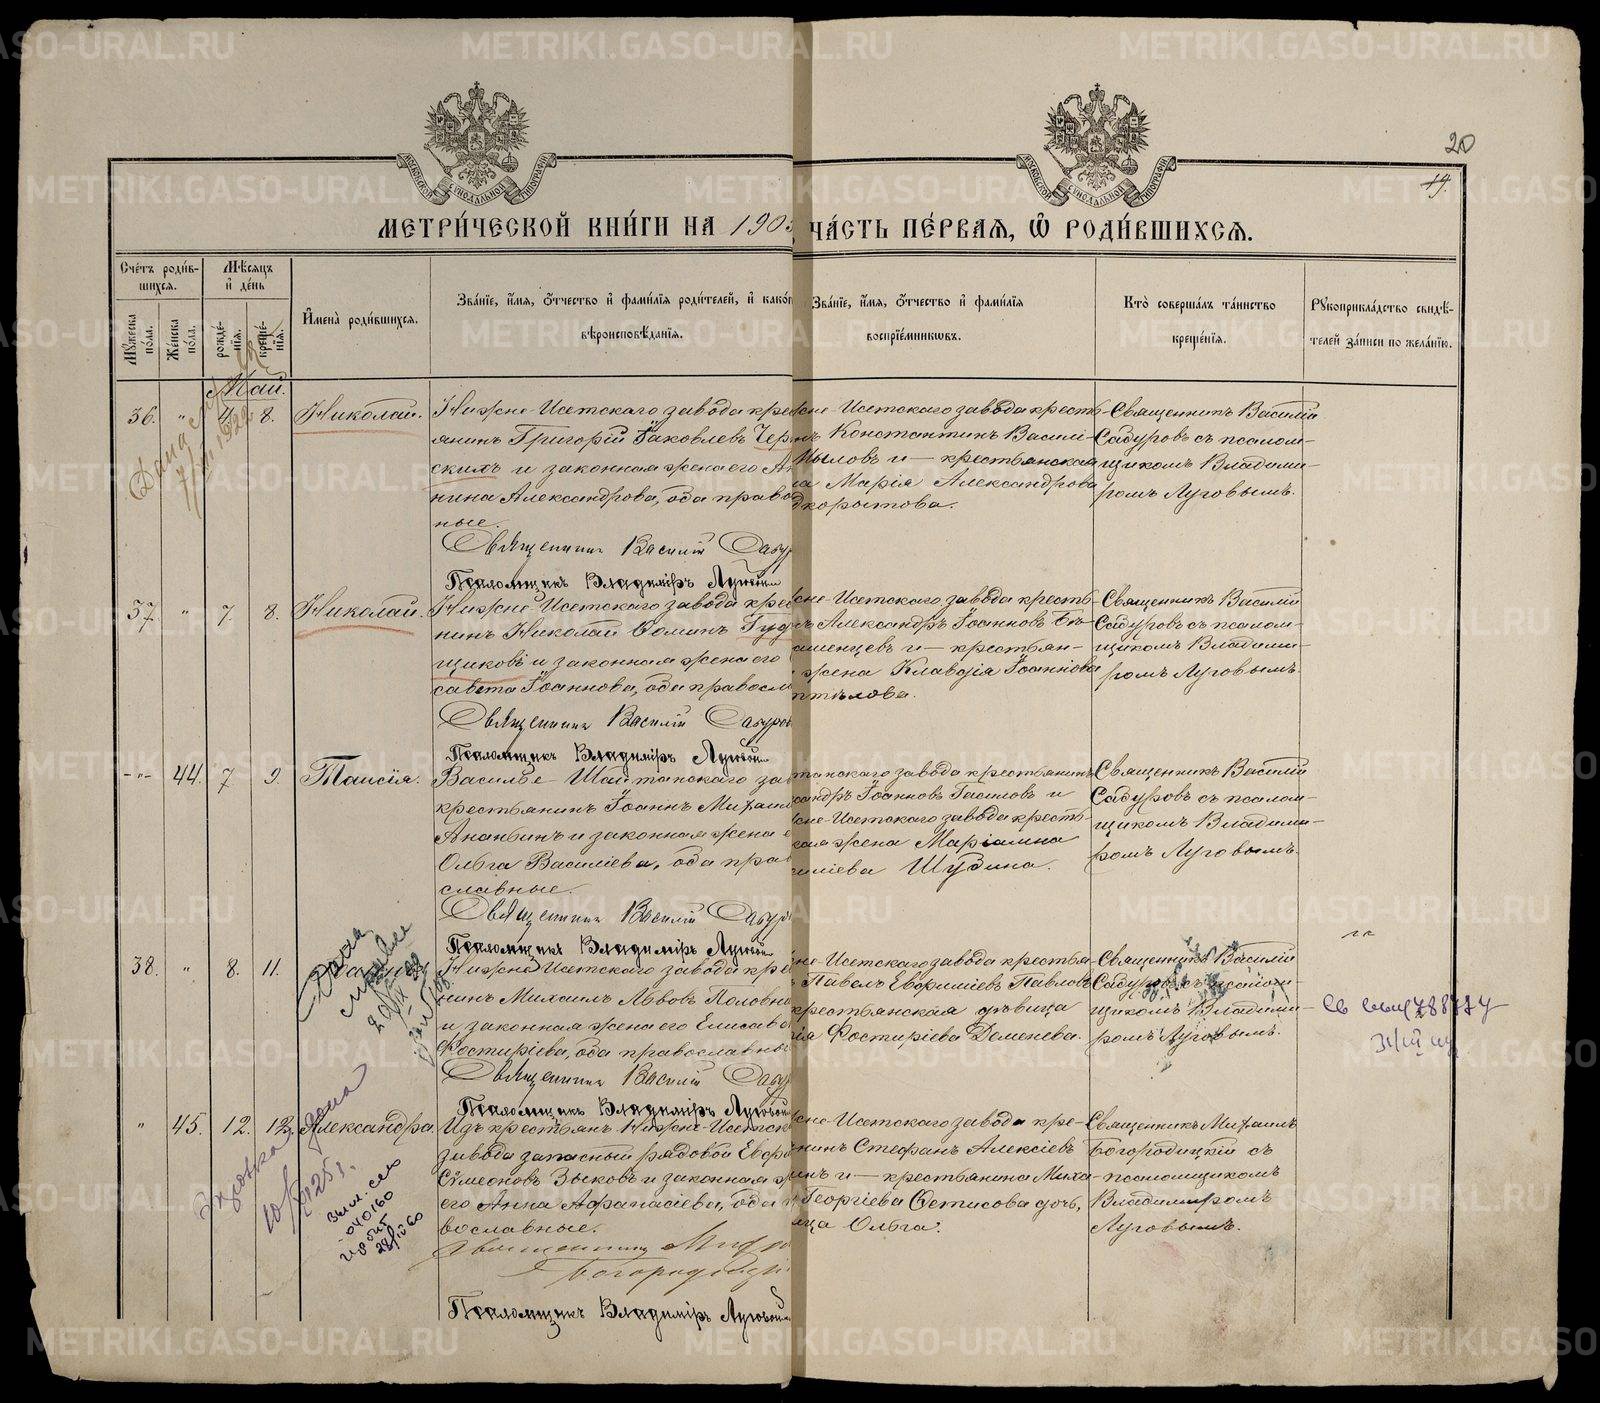 20
19.
МЕТРИ́ЧЕСКОЙ КНИ́ГИ НА 1903 ЧА́СТЬ ПЕ́РВАЯ, Ѡ҆ РОДИ́ВШИХСЯ.
Сче́тъ роди́в-
шихся.
Мѣ́сяцъ
и҆ де́нь
Му́жеска по́ла.
Же́нска по́ла.
рожде́-
нїя.
креще́-
нїя.
И҆мена̀ роди́вшихся.
Зва́нїе, и҆́мя, ѻ҆́тчество и҆ фами́лїя роди́телей, и҆ како́г
вѣроисповѣ́данїя.
Зва́нїе, и҆́мя, ѻ҆́тчество и҆ фами́лїя
воспрїе́мниковъ.
Кто̀ соверша́лъ та́инство
креще́нїя.
Рукоприкла́дство свидѣ́-
телей за́писи по жела́нїю.
Май.
36. " 4. 8. Николай.
Нижне-Исетскаго завода крест
янинъ Григорій Іаковлевъ Чер
скихъ и законная жена его Ан
нина Александрова, оба правос
ные.
Священникъ Василій Сатур
Псаломщикъ Владиміръ Луговой
сне-Исетскаго завода кресть-
нъ Константинъ Васили-
Мыловъ и - крестьянская
а Марія Александрова
дкорытова.
Священникъ Василій
Садуровъ съ псалом-
щикомъ Владими-
ромъ Луговымъ.
37. " 7. 8. Николай.
Нижне-Исетскаго завода крес
нинъ Николай Ѳоминъ Гуд
щиковъ и законная жена его
савета Іоаннова, оба правосл
Священникъ Василій Сатуров
Псаломщикъ Владиміръ Луговой
сне-Исетскаго завода кресть-
ъ Александръ Іоанновъ Бѣ-
ашенцевъ и - крестьян-
жена Клавдія Іоаннова
птѣлова.
Священникъ Василій
Садуровъ съ псалом-
щикомъ Владими-
ромъ Луговымъ.
-"- 44. 7 9. Таисія.
Васильве Шайтанскаго зав
крестьянинъ Іоаннъ Михаил
Ананьинъ и законная жена е
Ольга Василіева, оба прав
славные.
Священникъ Василій Сатур
Псаломщикъ Владиміръ Луговой
танскаго завода крестьянинъ
сандръ Іоанновъ Гасиловъ и
сне-Исетскаго завода кресть-
кая жена Маріамна
силіева Шудина.
Священникъ Василій
Садуровъ съ псалом-
щикомъ Владими-
ромъ Луговымъ.
38. " 8. 11.
Нижне-Исетскаго завода крес
нинъ Михаилъ Львовъ Половн
и законная жена его Елисаве
Фостиріева, оба православны
Священникъ Василій Сатур
Псаломщикъ Владиміръ Луговой
не-Исетскаго завода крестья-
ъ Павелъ Евфиміевъ Павловъ
крестьянская дѣвица
ія Фостиріева Деменева.
Священникъ Василій
Садуровъ съ псалом-
щикомъ Владими-
ромъ Луговымъ.
" 45. 12. 13. Александра.
Изъ крестьянъ Нижне-Исетск
завода запасный рядовой Евфи
Сѵмеоновъ Зыковъ и законная ж
его Анна Афанасіева, оба п
вославные.
Священникъ Миха
Богородицкі
Псаломщикъ Владиміръ Луговой
сне-Исетскаго завода кре-
нинъ Стефанъ Алексіевъ
инъ и - крестьянина Миха-
Георгіева Ѳетисова дочь,
ица Ольга.
Священникъ Михаилъ
Богородицкій съ
псаломщикомъ
Владиміромъ
Луговымъ.
10/ 1925 г.
040160
METRIKI.GASO-URAL.RU